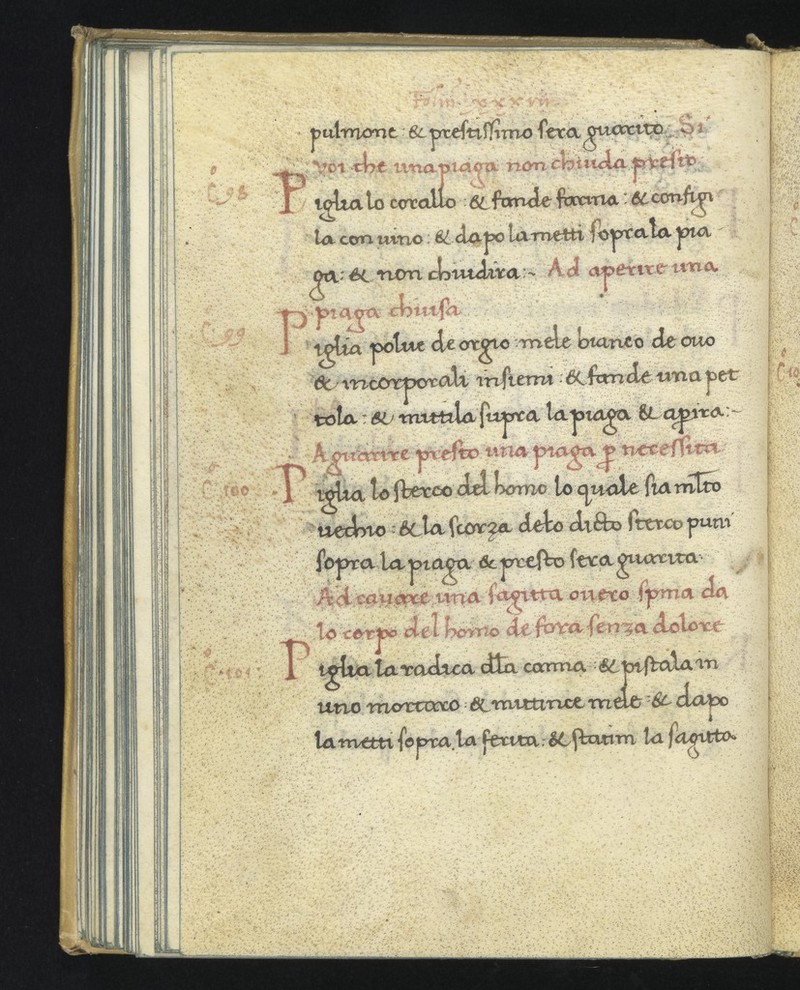 Foliu. xxxvii
pulmone : & prestissimo sera guarito. Si
voi che una piaga non chiuda presto
C.° 98 Piglia lo corallo : & fande farina : & configi
la con uino : & dapo la metti sopra la pia
ga : & non chiudira :~ Ad aperire una
piaga chiusa
C.° 99 Piglia polue de orgio : mele bianco de ouo
& incorporali insiemi : & fande una pet
tola : & mittila supra la piaga & apira :~
A guarire presto una piaga p necessita
C.° 100 Piglia lo sterco del homo lo quale sia mlto
uechio : & la scorza delo dicto sterco puni
sopra la piaga & presto sera guarita.
Ad cauare una sagitta ouero spina da
lo corpo del homo de fora senza dolore
C.° 101 Piglia la radica dla canna & pistala in
uno mortaro : & mittince mele & dapo
la metti sopra la ferita : & statim la sagitta